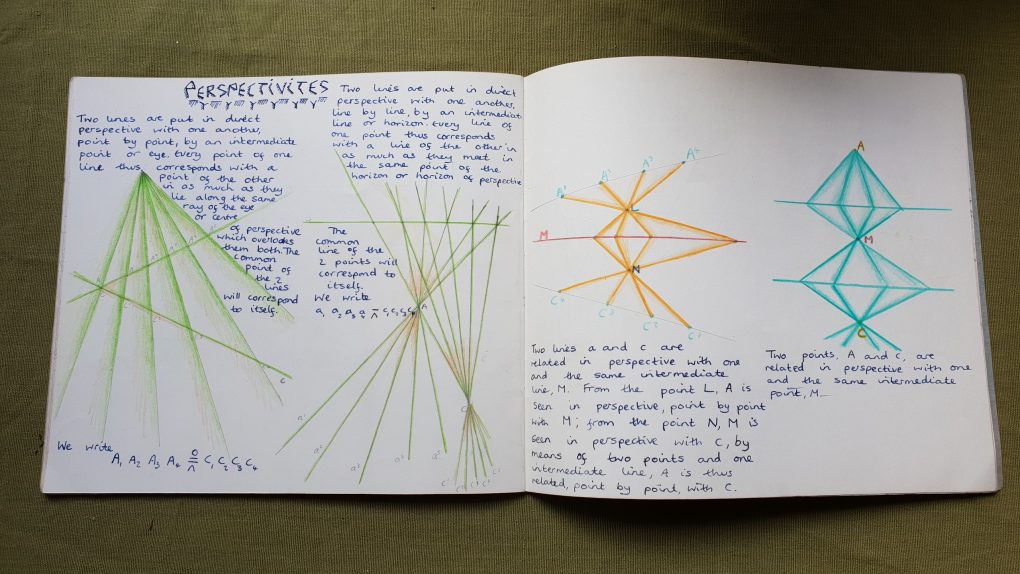 PERSPECTIVITES
Two lines are put in direct
perspective with one another,
point by point, by an intermediate
point or eye. Every point of one
line thus corresponds with a
point of the other
in as much as they
lie along the same
ray of the eye
or centre
of perspective
which overlooks
them both. The
common
point of
the 2
lines
will correspond
to itself.
C
We write
A1 A2 A3 A4 O/Λ C1 C2 C3 C4
Two lines are put in direct
perspective with one another,
line by line, by an intermediate
line or horizon. Every line of
one point thus corresponds
with a line of the other in
as much as they meet in
the same point of the
horizon or horizon of perspective
The
common
line of the
2 points will
correspond to
itself.
We write
a1 a2 a3 a4 Λ C1 C2 C3 C4
A
a1
a2
a3
C
A1
A2
A3
A4
L
M
N
C4
C3
C2
C1
Two lines a and c are
related in perspective with one
and the same intermediate
line, M. From the point L, A is
seen in perspective, point by point
with M; from the point N, M is
seen in perspective with C, by
means of two points and one
intermediate line, A is thus
related, point by point, with C.
A
M
C
Two points, A and C, are
related in perspective with one
and the same intermediate
point, M